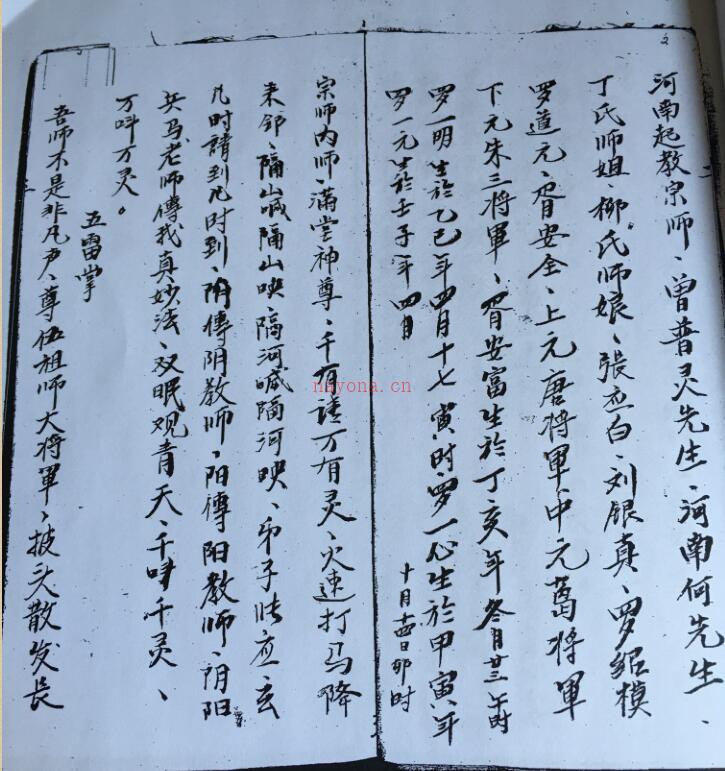 2
河南起教宗师、曾普灵先生、河南何先生、
丁氏师姐、柳氏师娘、張应白、刘银真、罗紹模
罗道元、胥安全、上元唐将軍、中元葛将軍
下元朱三将軍、胥安富生於丁亥年冬月廿三午时
罗一明生於乙巳年四月十七寅时、罗一心生於甲寅年
十月十四日卯时
罗一元生於壬子年四月
宗师内师、满堂神尊、千有請万有灵、火速打马降
来邻、隔山喊隔山映、隔河喊隔河映、弟子張应玄
几时請到几时到、阴傳阴教师、阳傳阳教师、阴阳
兵马老师傳我真妙法、双眼观青天、千呌千灵、
万呌万灵。
五雷掌
吾师不是非凡声、尊伍祖师大将軍、披头散发長
nayona.cn